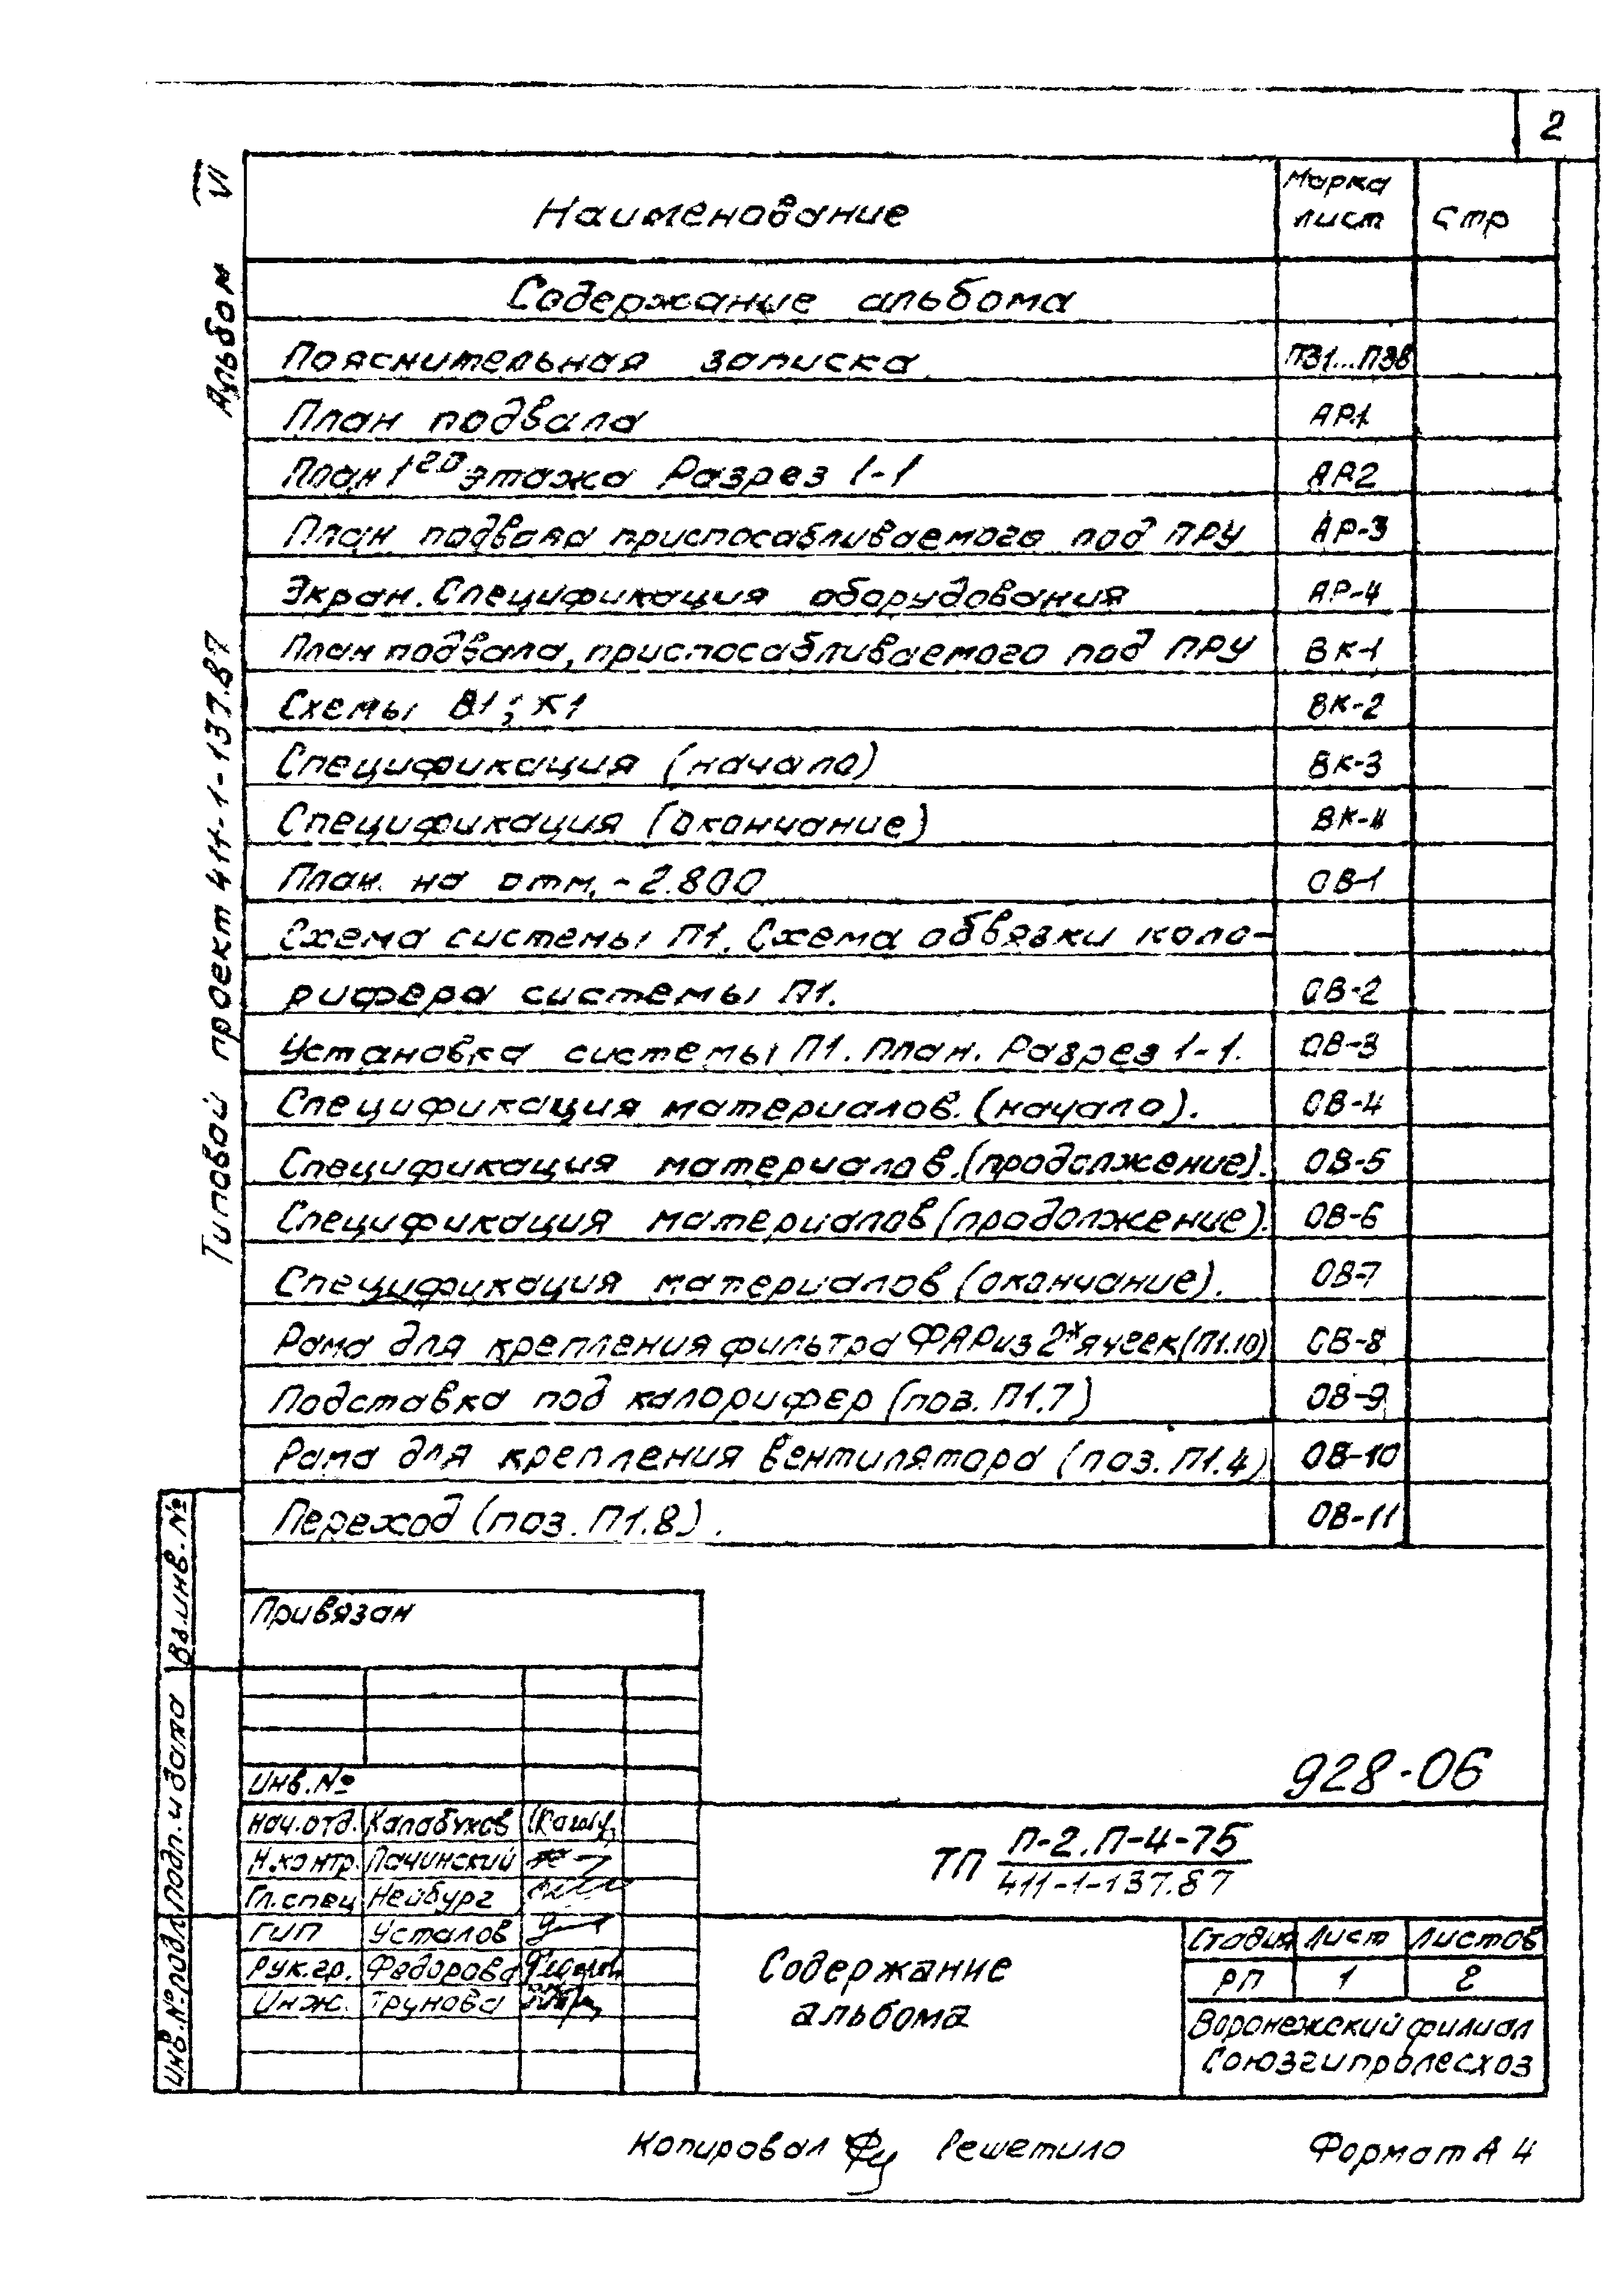 2
Альбом VI
Типовой проект 411-1-137.87
Наименование Марка лист Стр
Содержание альбома
Пояснительная записка ПЗ1...ПЗ8
План подвала АР.1
План 1го этажа Разрез 1-1 АР.2
План подвала приспосабливаемого под ПРУ АР-3
Экран. Спецификация оборудования АР-4
План подвала, приспосабливаемого под ПРУ ВК-1
Схемы В1; К1 ВК-2
Спецификация (начало) ВК-3
Спецификация (окончание) ВК-4
План. на отм. -2.800 ОВ-1
Схема системы П1. Схема обвязки кало-
рифера системы П1. ОВ-2
Установка системы П1. План. Разрез 1-1. ОВ-3
Спецификация материалов. (начало). ОВ-4
Спецификация материалов. (продолжение). ОВ-5
Спецификация материалов (продолжение). ОВ-6
Спецификация материалов (окончание). ОВ-7
Рама для крепления фильтра ФЯР из 2х ячеек (П1.10) ОВ-8
Подставка под калорифер (поз. П1.7) ОВ-9
Рама для крепления вентилятора (поз. П1.4) ОВ-10
Переход (поз. П1.8). ОВ-11
Вз. инв. №
Подп. и дата
Инв. № подл.
Привязан
Инв. №
928-06
Нач. отд. Калабухов
Н. контр. Лачинский
Гл. спец Нейбург
ГИП Усталов
Рук. гр. Федорова
Инж. Трунова
ТП П-2.П-4-75
411-1-137.87
Содержание
альбома
Стадия Лист Листов
РП 1 2
Воронежский филиал
Союзгипролесхоз
Копировал Решетило Формат А 4